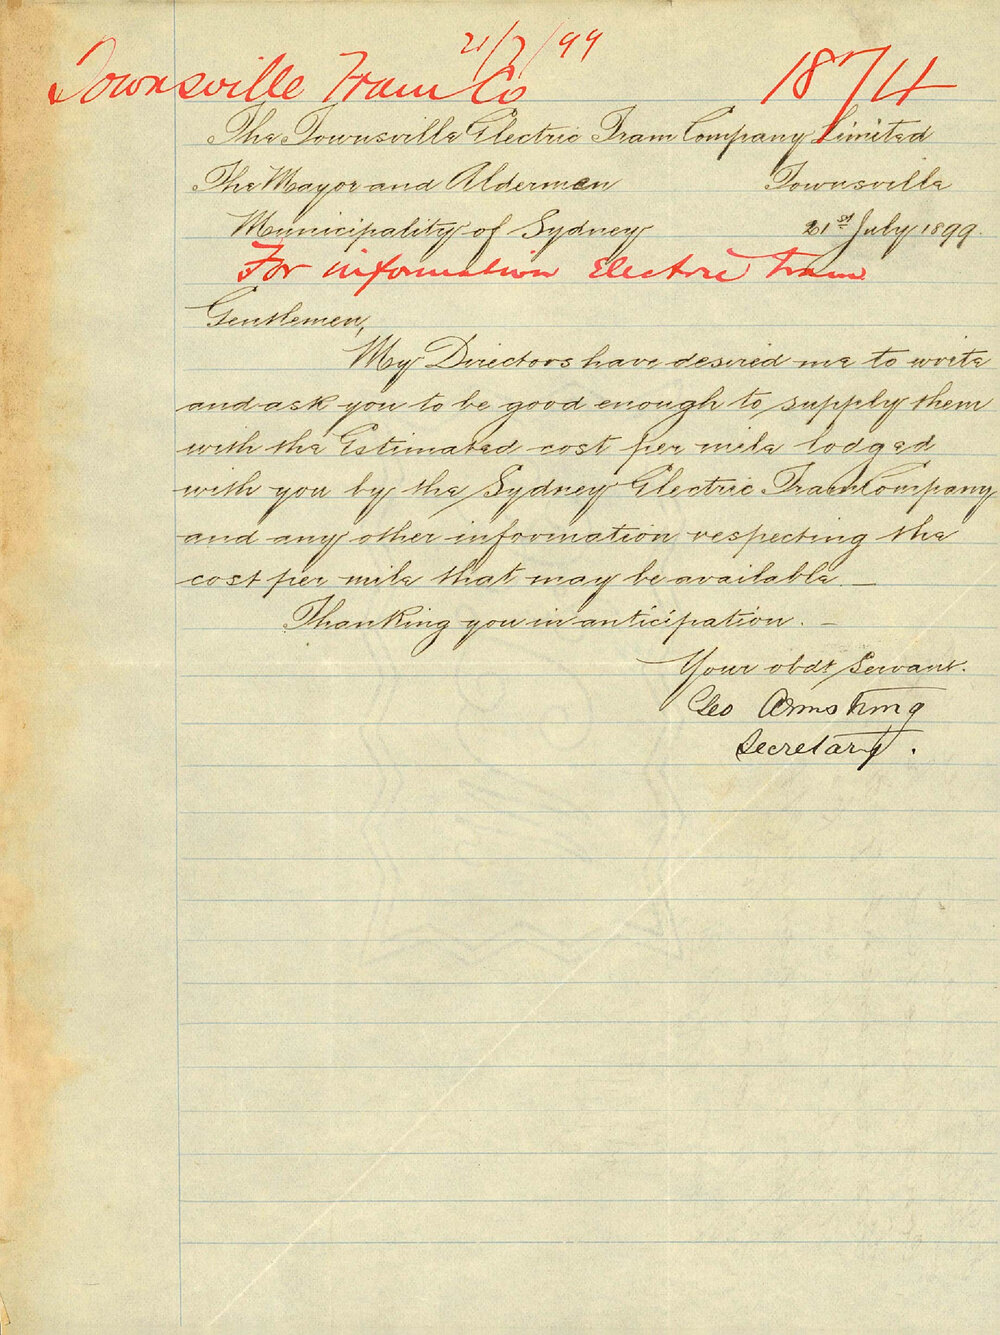 21/7/99
Townsville Tram Co 1874
The Townsville Electric Tram Company Limited
The Mayor and Aldermen Townsville
Municipality of Sydney 21st July 1899.
For information Electric tram
Gentlemen,
My Directors have desired me to write
and ask you to be good enough to supply them
with the Estimated cost per mile lodged
with you by the Sydney Electric Tram Company
and any other information respecting the
cost per mile that may be available. —
Thanking you in anticipation. —
Your obdt Servant.
Geo Armstrong
Secretary.